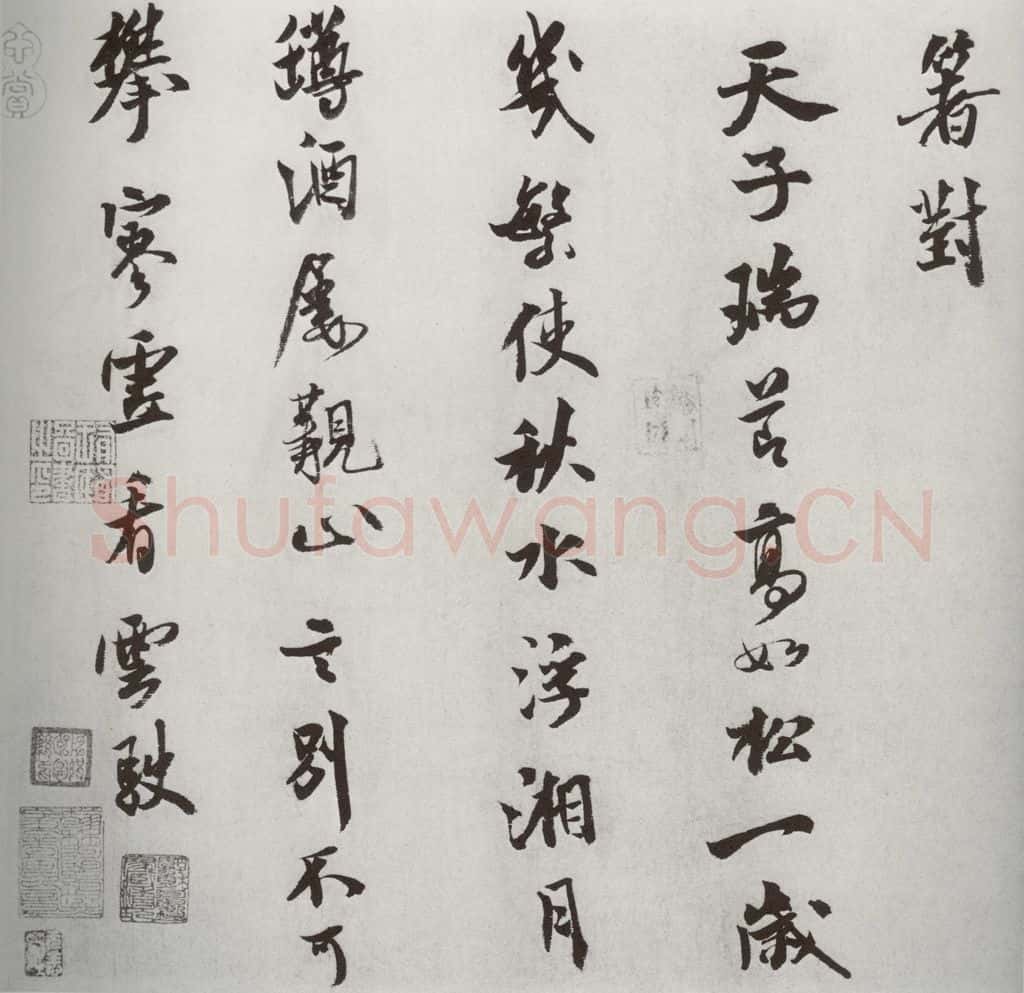 箸對
天子瑞節高如松一歲
幾繁使秋水浮湘月
罇酒屢覯止言別不可
攀寥看雲駛
Shufawang.CN